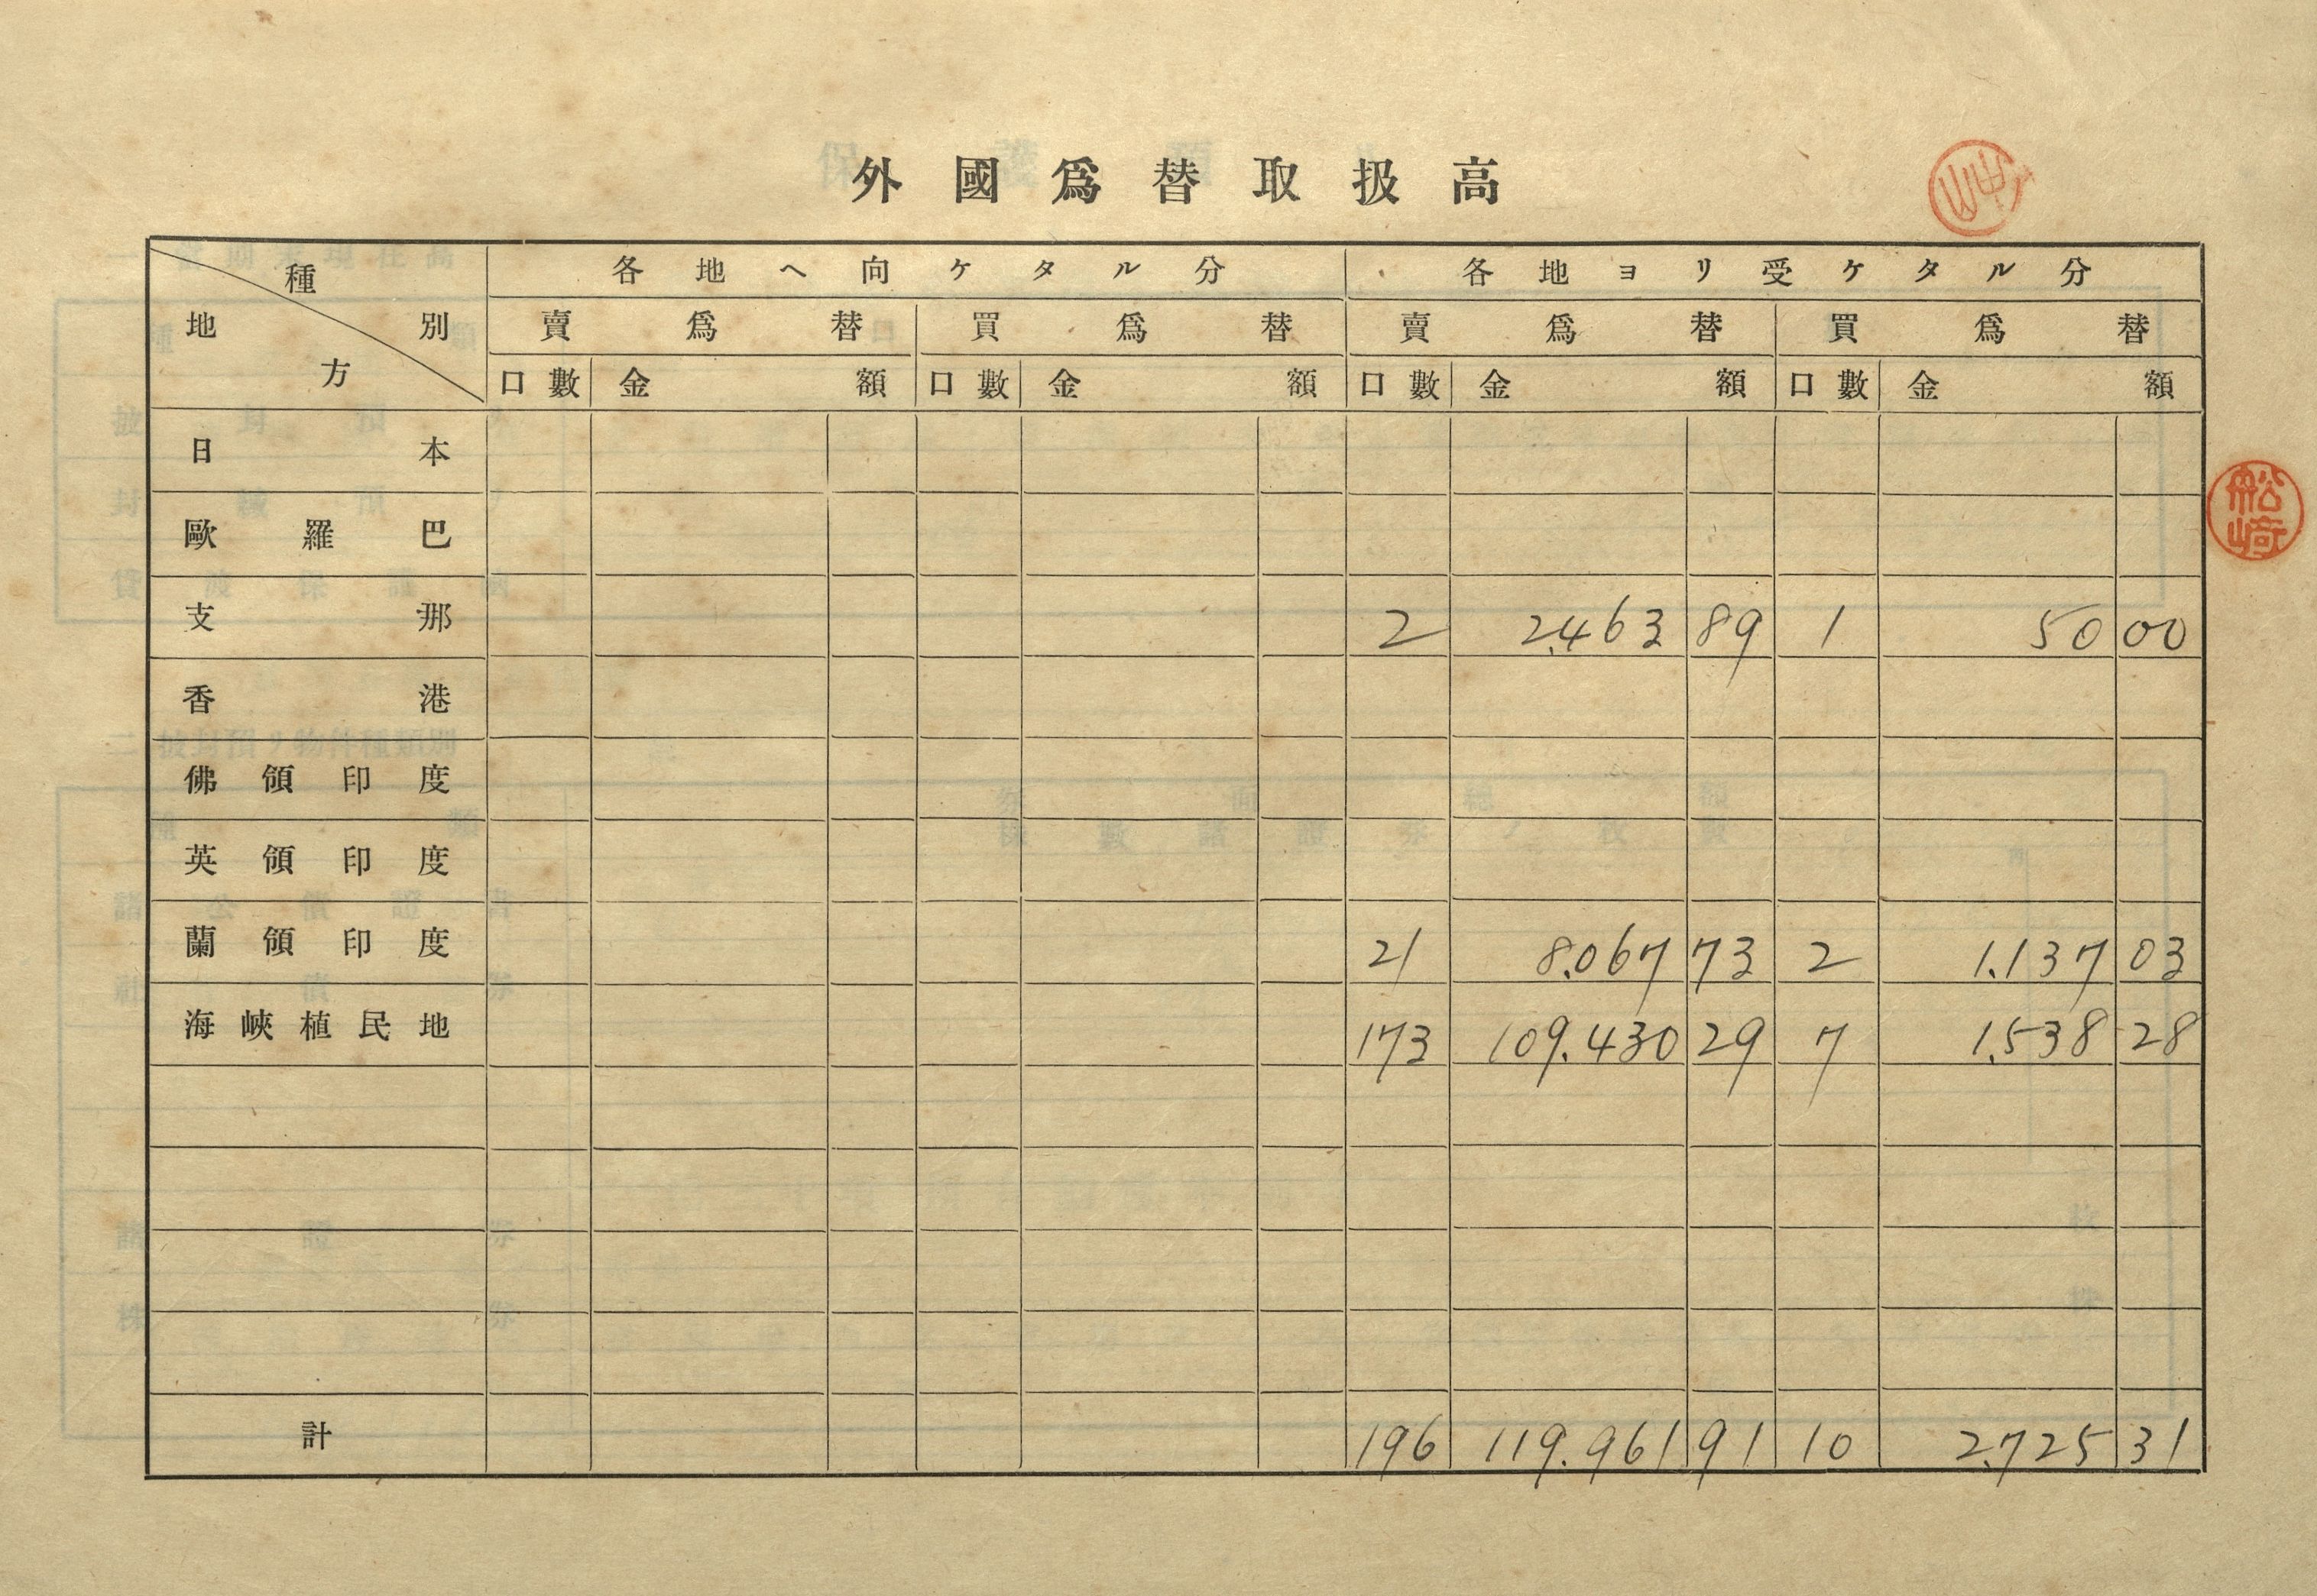 外國爲替取扱高
種別
地方
各地ヘ向ケタル分 各地ヨリ受ケタル分
賣爲替 買爲替 賣爲替 買爲替
口數 金額 口數 金額 口數 金額 口數 金額
日本
歐羅巴
支那 2 2.463 89 1 50 00
香港
佛領印度
英領印度
蘭領印度 21 8.067 73 2 1.137 03
海峽植民地 173 109.430 29 7 1.538 28
計 196 119.961 91 10 2.725 31
舩崎